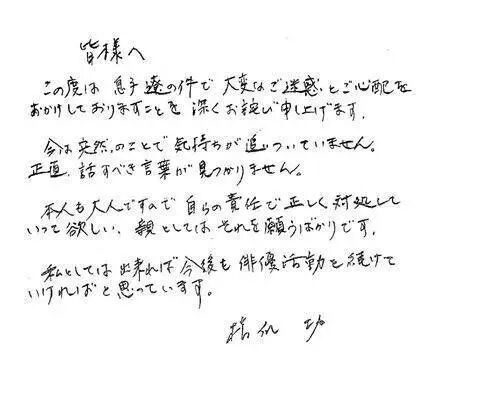 皆様へ
この度は 息子遼の件で 大変なご迷惑とご心配を
おかけしておりますことを 深くお詫び申し上げます.
今は突然のことで 気持ちが追いついていません。
正直、話すべき言葉が見つかりません。
本人も大人ですので 自らの責任で正しく対処して
いって欲しい、親としてはそれを願うばかりです.
私としては 出来れば今後も俳優活動を続けて
いければと思っています。
功